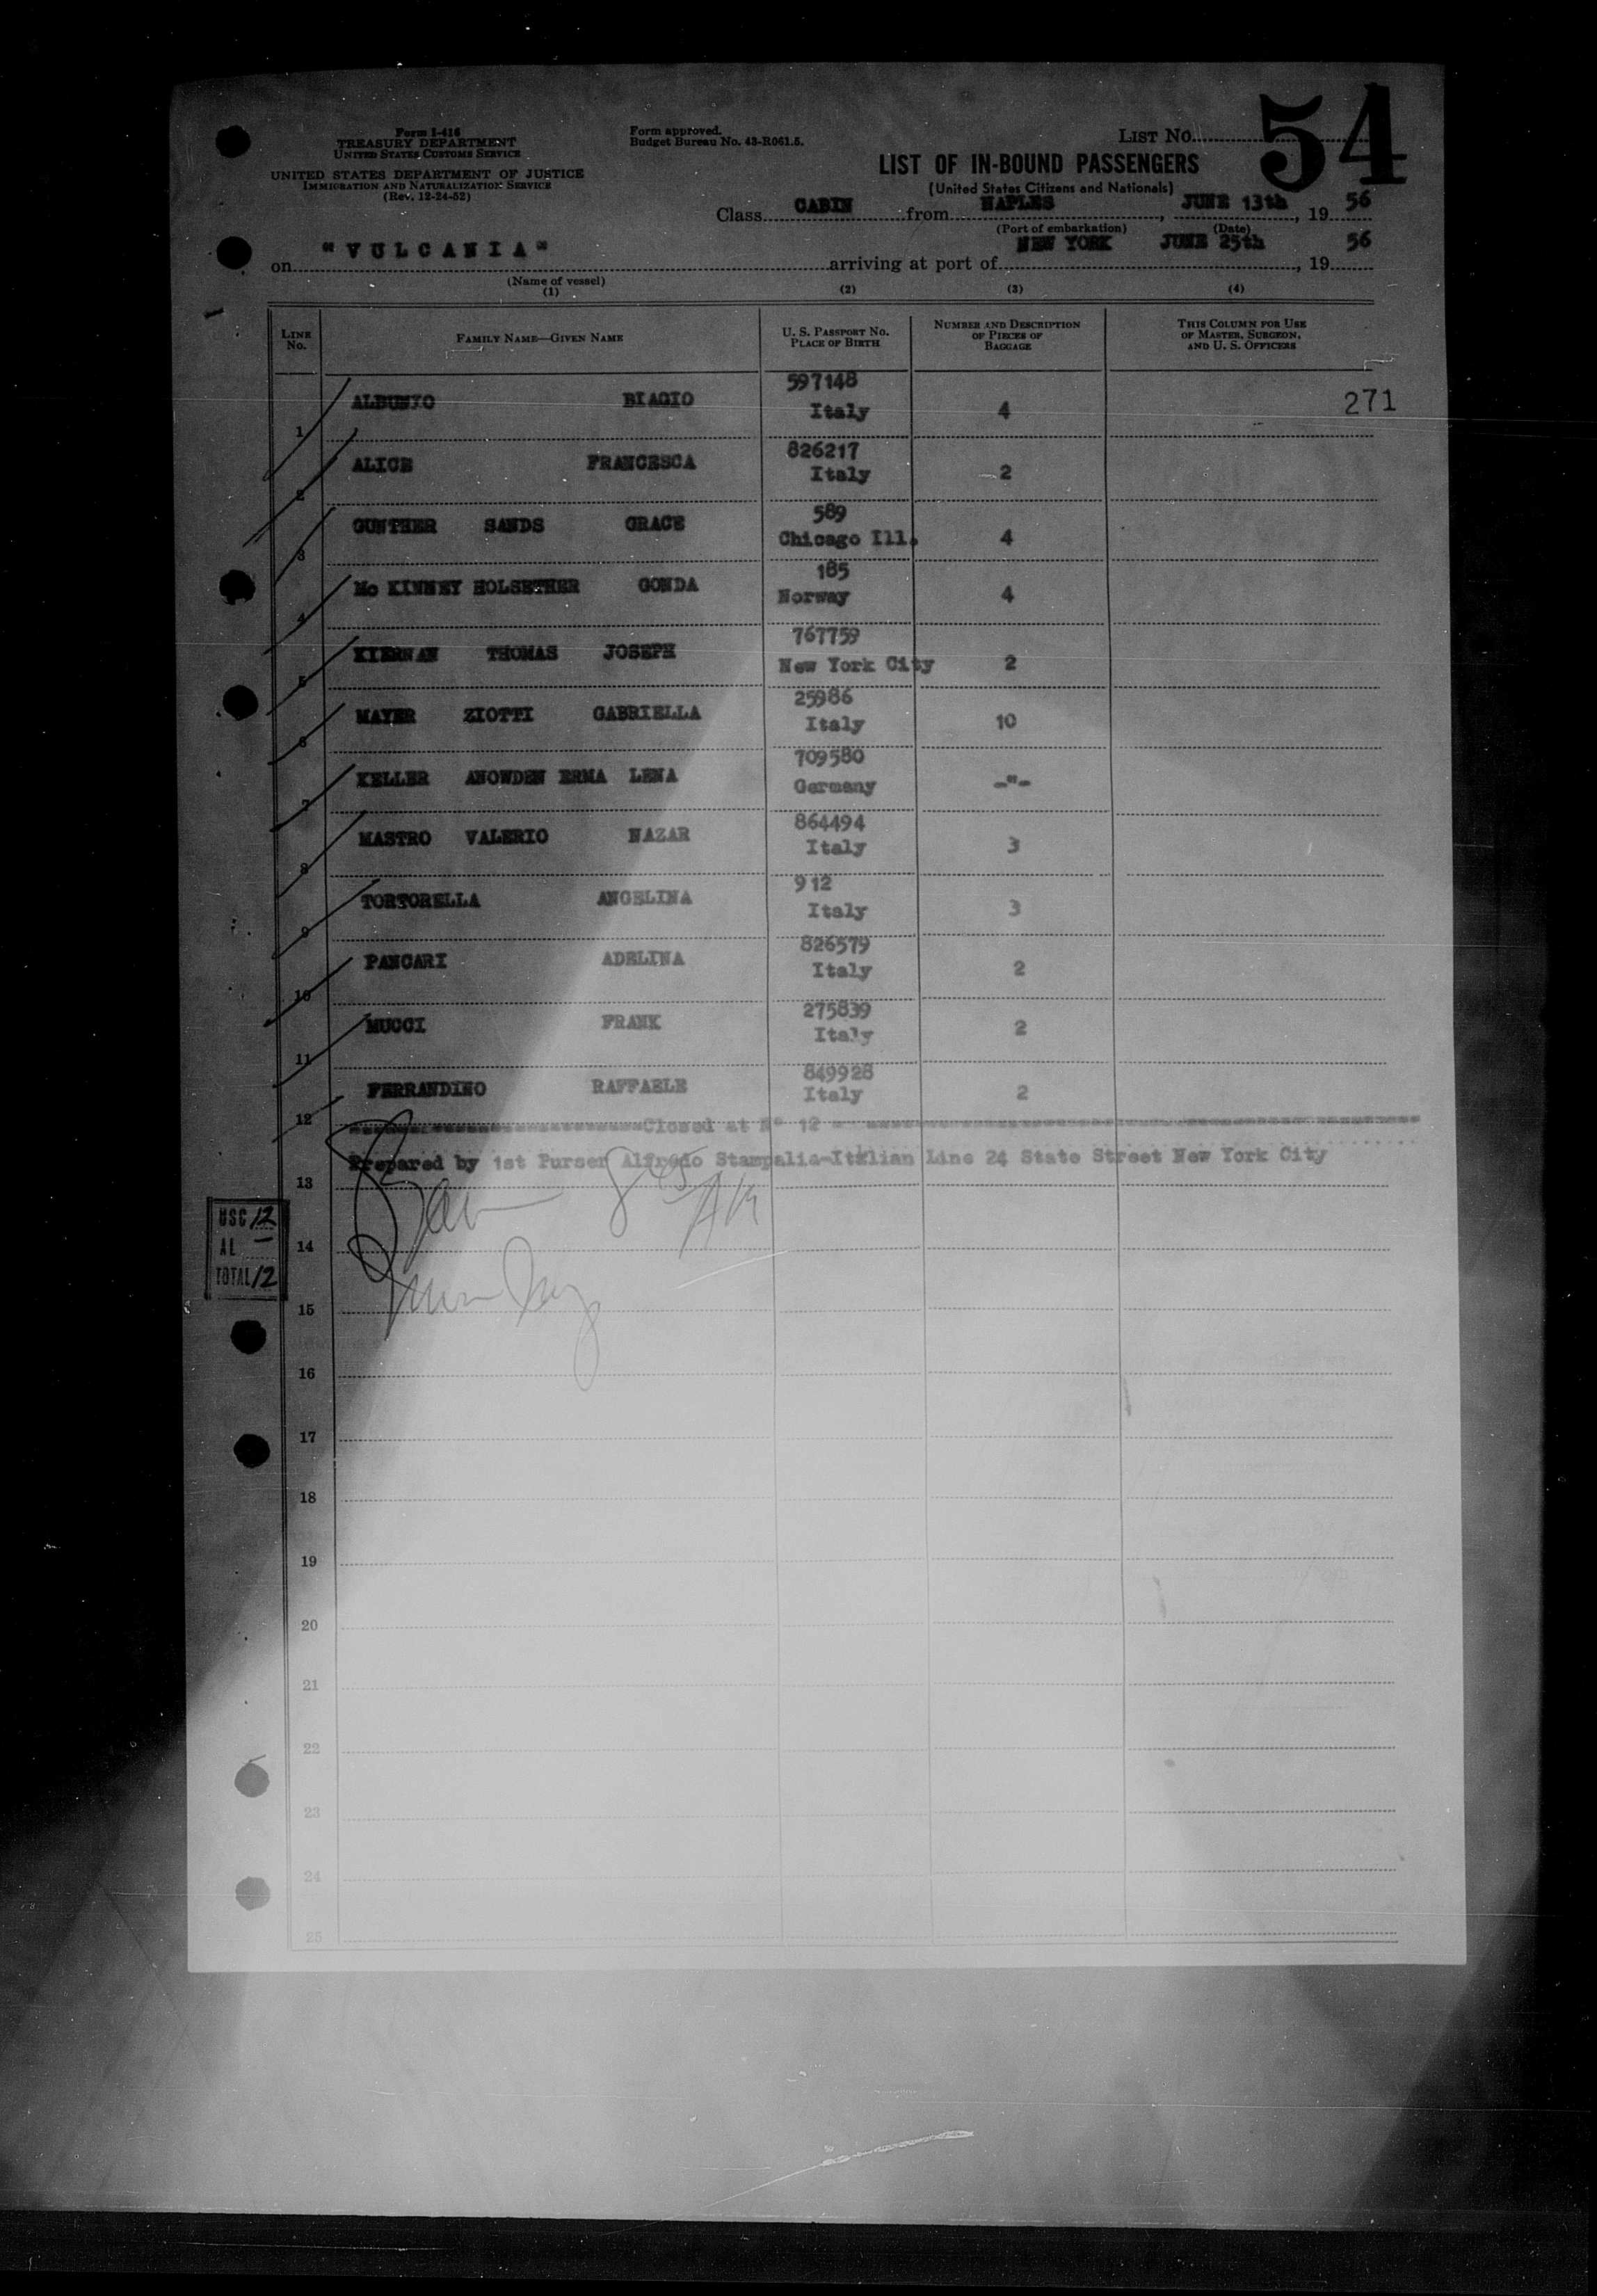 Form I-416
TREASURY DEPARTMENT
UNITED STATES CUSTOMS SERVICE
UNITED STATES DEPARTMENT OF JUSTICE
IMMIGRATION AND NATURALIZATION SERVICE
(Rev. 12-24-52)
Form approved.
Budget Bureau No. 43-R061.5.
LIST No. 54
LIST OF IN-BOUND PASSENGERS
(United States Citizens and Nationals)
Class CABIN from NAPLES, JUNE 13th, 19 56
(Port of embarkation) (Date)
on "VULCANIA" arriving at port of NEW YORK JUNE 25th, 19 56
(Name of vessel)
(1) (2) (3) (4)
LINE No. FAMILY NAME—GIVEN NAME U. S. PASSPORT No. PLACE OF BIRTH NUMBER AND DESCRIPTION OF PIECES OF BAGGAGE THIS COLUMN FOR USE OF MASTER, SURGEON, AND U. S. OFFICERS
271
1 BIAGIO 597148 Italy 4
2 ALICE FRANCESCA 826217 Italy 2
3 GUNTHER SANDS GRACE 589 Chicago Ill. 4
4 Mc KINNEY HOLSETHER GONDA 185 Norway 4
5 KIERNAN THOMAS JOSEPH 767759 New York City 2
6 MAYER ZIOTTI GABRIELLA 25986 Italy 10
7 KELLER ANOWDEN ERMA LENA 709580 Germany -"-
8 MASTRO VALERIO NAZAR 864494 Italy 3
9 TORTORELLA ANGELINA 912 Italy 3
10 PANCARI ADELINA 826579 Italy 2
11 MUCCI FRANK 275839 Italy 2
12 FERRANDINO RAFFAELE 849928 Italy 2
Closed at N° 12
Prepared by 1st Purser Alfredo Stampalia-Italian Line 24 State Street New York City
13
USC 12
AL —
TOTAL 12
14
15
16
17
18
19
20
21
22
23
24
25